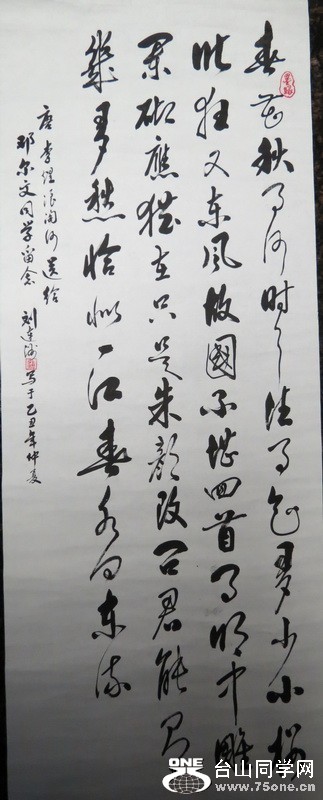 春花秋月何时了往事知多少小楼
昨夜又东風故國不堪回首月明中雕
阑砌應猶在只是朱顏改问君能有
幾多愁恰似一江春水向东流
唐李煜浪淘沙選给
邓尔文同学留念 刘 写于乙丑年仲夏
ONE
台山同学网
www.75one.cn